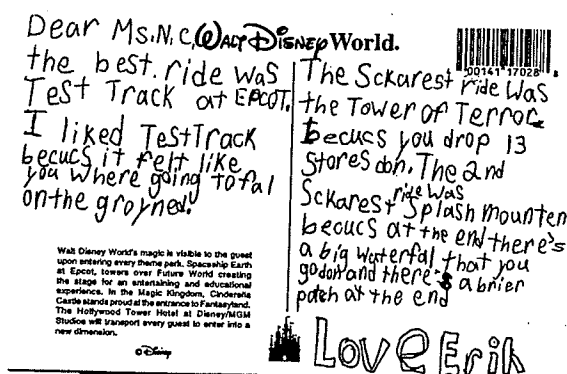 Dear Ms. N. C,
WALT DISNEY World.
the best. ride was
Test Track at EPCOT.
I liked TestTrack
becucs it felt like
you where going to fal
on the groyned.
Walt Disney World's magic is visible to the guest
upon entering every theme park. Spaceship Earth
at Epcot, towers over Future World creating
the stage for an entertaining and educational
experience. In the Magic Kingdom, Cinderella
Castle stands proud at the entrance to Fantasyland.
The Hollywood Tower Hotel at Disney/MGM
Studios will transport every guest to enter into a
new dimension.
© Disney
00141 17028
The Sckarest ride was
the Tower of Terror
becucs you drop 13
stores don. The 2nd
Sckarest ride was Splash mounten
beoucs at the end there's
a big waterfal that you
go don and there's a brier
patch at the end
Love Erik